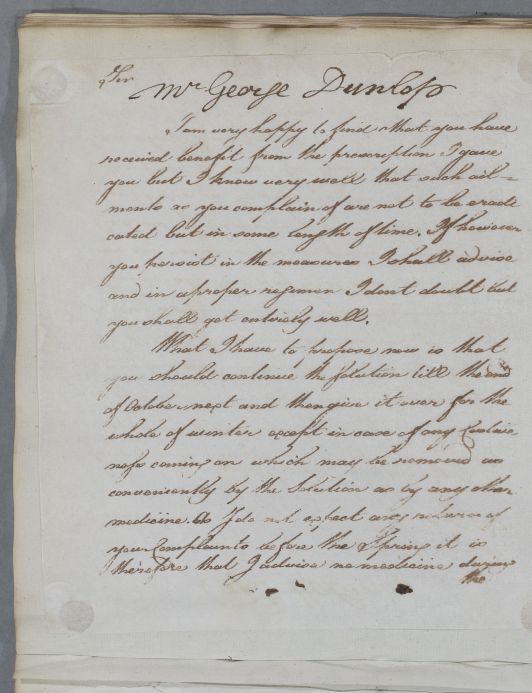 Sir
Mr George Dunlop
I am very happy to find that you have
received benefit from the prescription I gave
you but I know very well that such ail=
ments as you complain of are not to be eradi
cated but in some length of time. If however
you persist in the measures I shall advise
and in a proper regimen I dont doubt but
you shall get entirely well.
What I have to propose now is that
you should continue the Solution till the end
of October next and then give it over for the
whole of winter except in case of any Costive
ness coming on which may be removed as
conveniently by the Solution as by any other
medicine. As I do not expect any return of
your Complaints before the Spring it is
therefore that I advise no medicine during
the